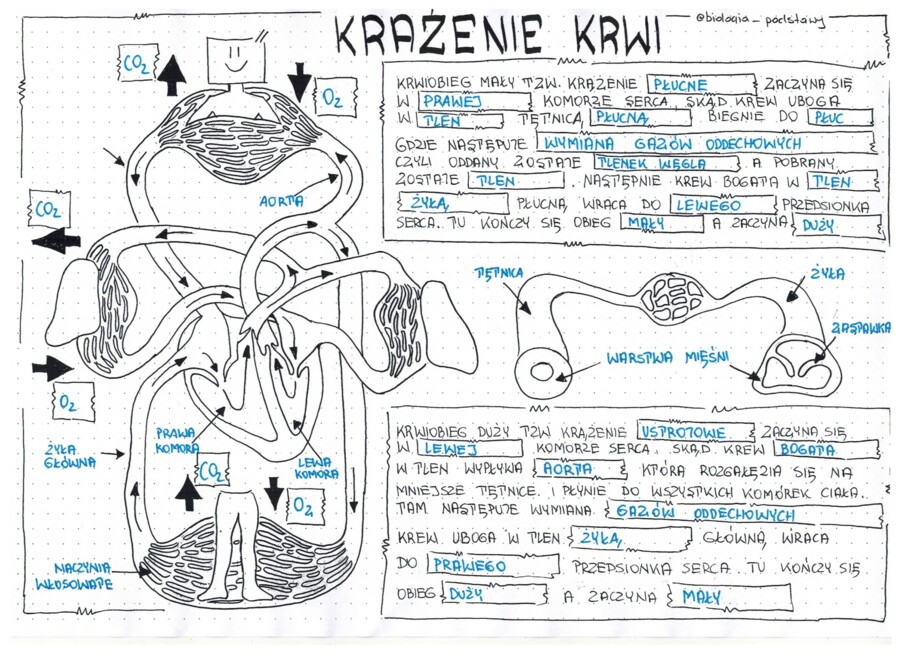 KRĄŻENIE KRWI
@biologia_podstawy
KRWIOBIEG MAŁY TZW. KRĄŻENIE PŁUCNE ZACZYNA SIĘ
W PRAWEJ KOMORZE SERCA, SKĄD KREW UBOGA
W TLEN TĘTNICĄ PŁUCNĄ BIEGNIE DO PŁUC
GDZIE NASTĘPUJE WYMIANA GAZÓW ODDECHOWYCH
CZYLI ODDANY ZOSTAJE TLENEK WĘGLA, A POBRANY
ZOSTAJE TLEN. NASTĘPNIE KREW BOGATA W TLEN
ŻYŁĄ PŁUCNĄ WRACA DO LEWEGO PRZEDSIONKA
SERCA. TU KOŃCZY SIĘ OBIEG MAŁY A ZACZYNA DUŻY
CO2
O2
AORTA
CO2
O2
ŻYŁA
GŁÓWNA
PRAWA
KOMORA
LEWA
KOMORA
CO2
O2
NACZYNIA
WŁOSOWATE
TĘTNICA
ŻYŁA
ZASTAWKA
WARSTWA MIĘŚNI
KRWIOBIEG DUŻY TZW KRĄŻENIE USTROJOWE ZACZYNA SIĘ
W LEWEJ KOMORZE SERCA, SKĄD KREW BOGATA
W TLEN WYPŁYWA AORTĄ, KTÓRA ROZGAŁĘZIA SIĘ NA
MNIEJSZE TĘTNICE I PŁYNIE DO WSZYSTKICH KOMÓREK CIAŁA.
TAM NASTĘPUJE WYMIANA GAZÓW ODDECHOWYCH
KREW UBOGA W TLEN ŻYŁĄ GŁÓWNĄ WRACA
DO PRAWEGO PRZEDSIONKA SERCA. TU KOŃCZY SIĘ
OBIEG DUŻY A ZACZYNA MAŁY